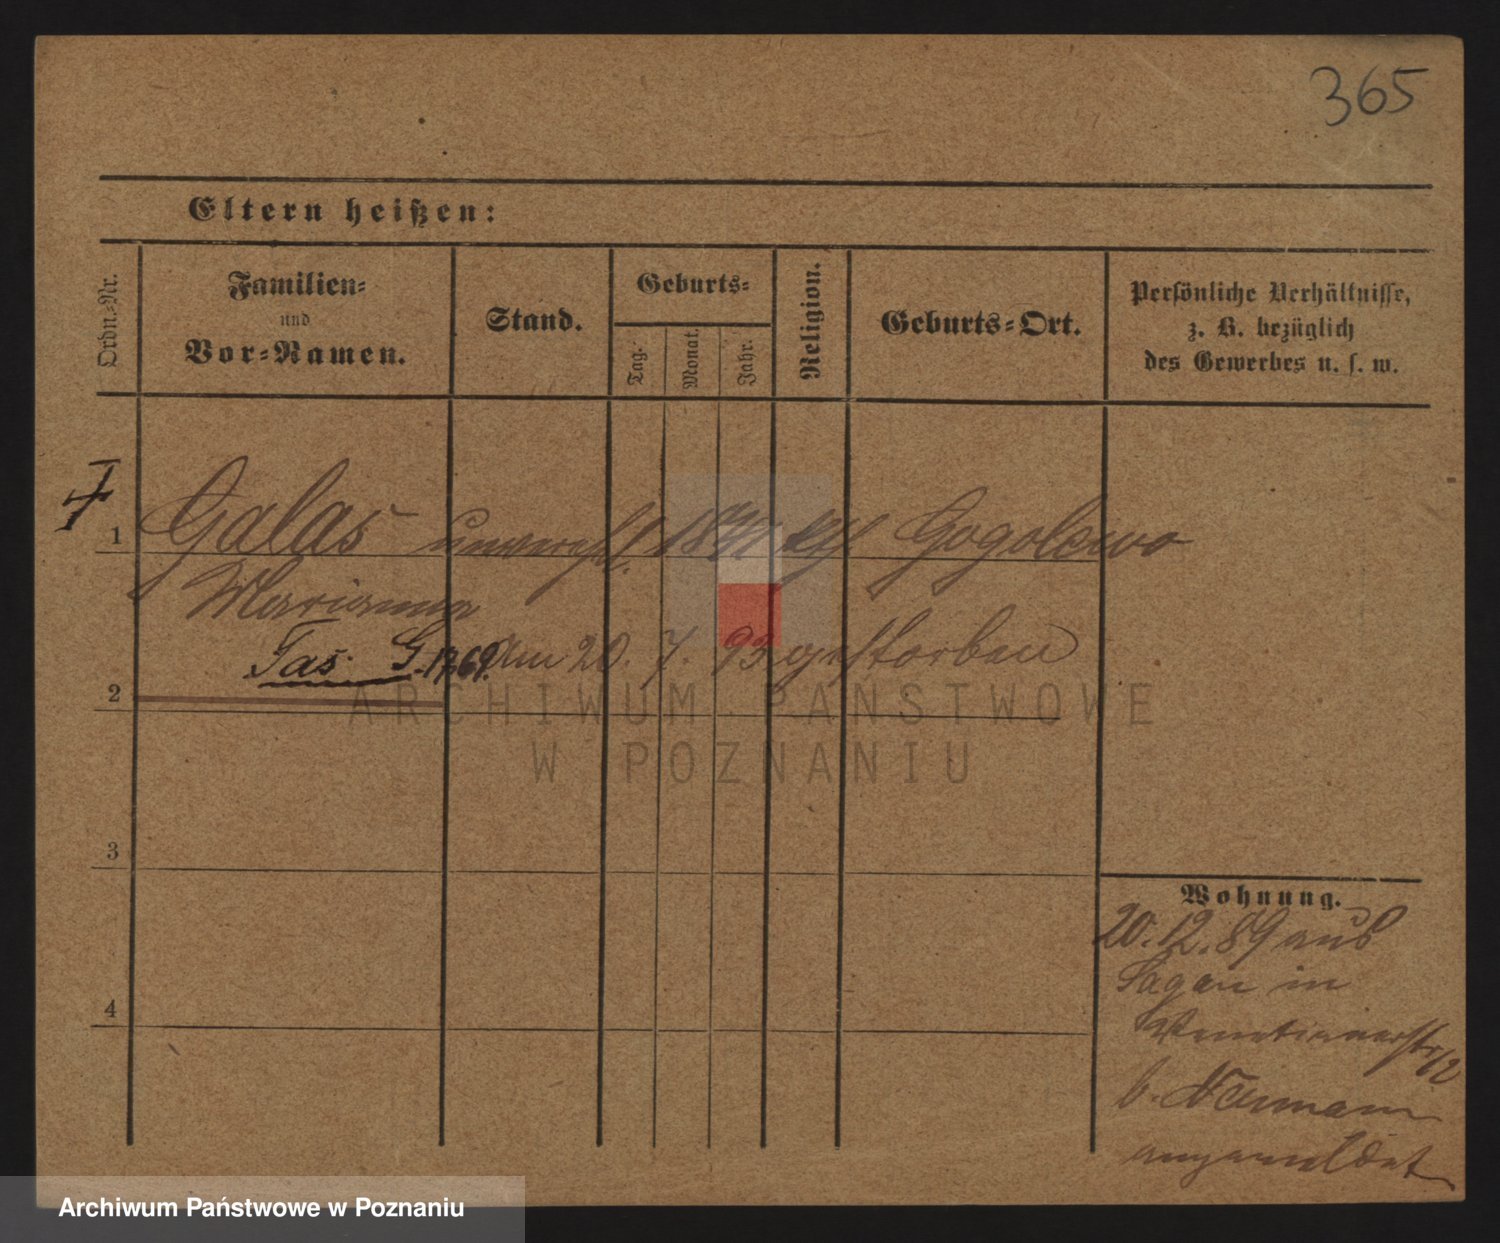 365
Eltern heißen:
Ordn.-Nr.
Familien-
und
Vor-Namen.
Stand.
Geburts-
Tag.
Monat.
Jahr.
Religion.
Geburts-Ort.
Persönliche Verhältnisse,
z. B. bezüglich
des Gewerbes u. s. w.
1 Galas unverehl. Gogolewo
Marianna
Fas. G. 1769. Am 20. 7. 93 gestorben
2
ARCHIWUM PAŃSTWOWE
W POZNANIU
3
Wohnung.
20.12.89 aus
Sagan in
Venetianerstr
b. Neumann
angemeldet
4
Archiwum Państwowe w Poznaniu